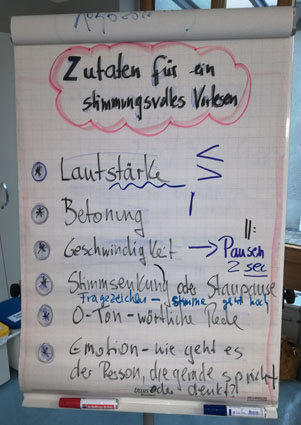 Zutaten für ein
stimmungsvolles Vorlesen
Lautstärke < >
Betonung |
Geschwindigkeit → Pausen ||:
2 sec
Stimmsenkung oder Staupause
Fragezeichen - Stimme geht hoch
O-Ton - wörtliche Rede
Emotion - wie geht es
der Person, die gerade spricht
oder denkt?